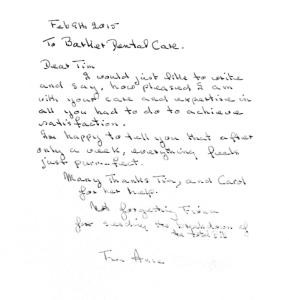 Feb 9th 2015
To Barker Dental Care.
Dear Tim
I would just like to write
and say, how pleased I am
with your care and expertise in
all you had to do to achieve
satisfaction.
Im happy to tell you that after
only a week, everything feels
just purr-fect.
Many Thanks Tim, and Carol
for her help.
Not forgetting
for sending the breakdown of
the total